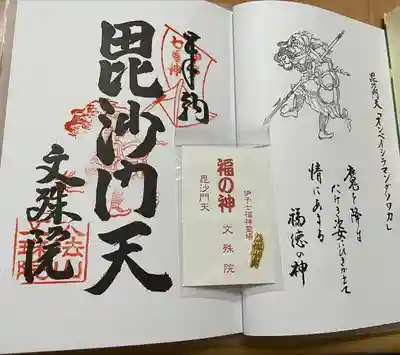 毘沙門天 「オンベイシラマンダヤソワカ
魔を降す
たけき姿にひきかえて
情にあまる
福徳の神
伊予七福神霊場
福の神 文殊院
毘沙門天
奉納
毘沙門天
文殊院